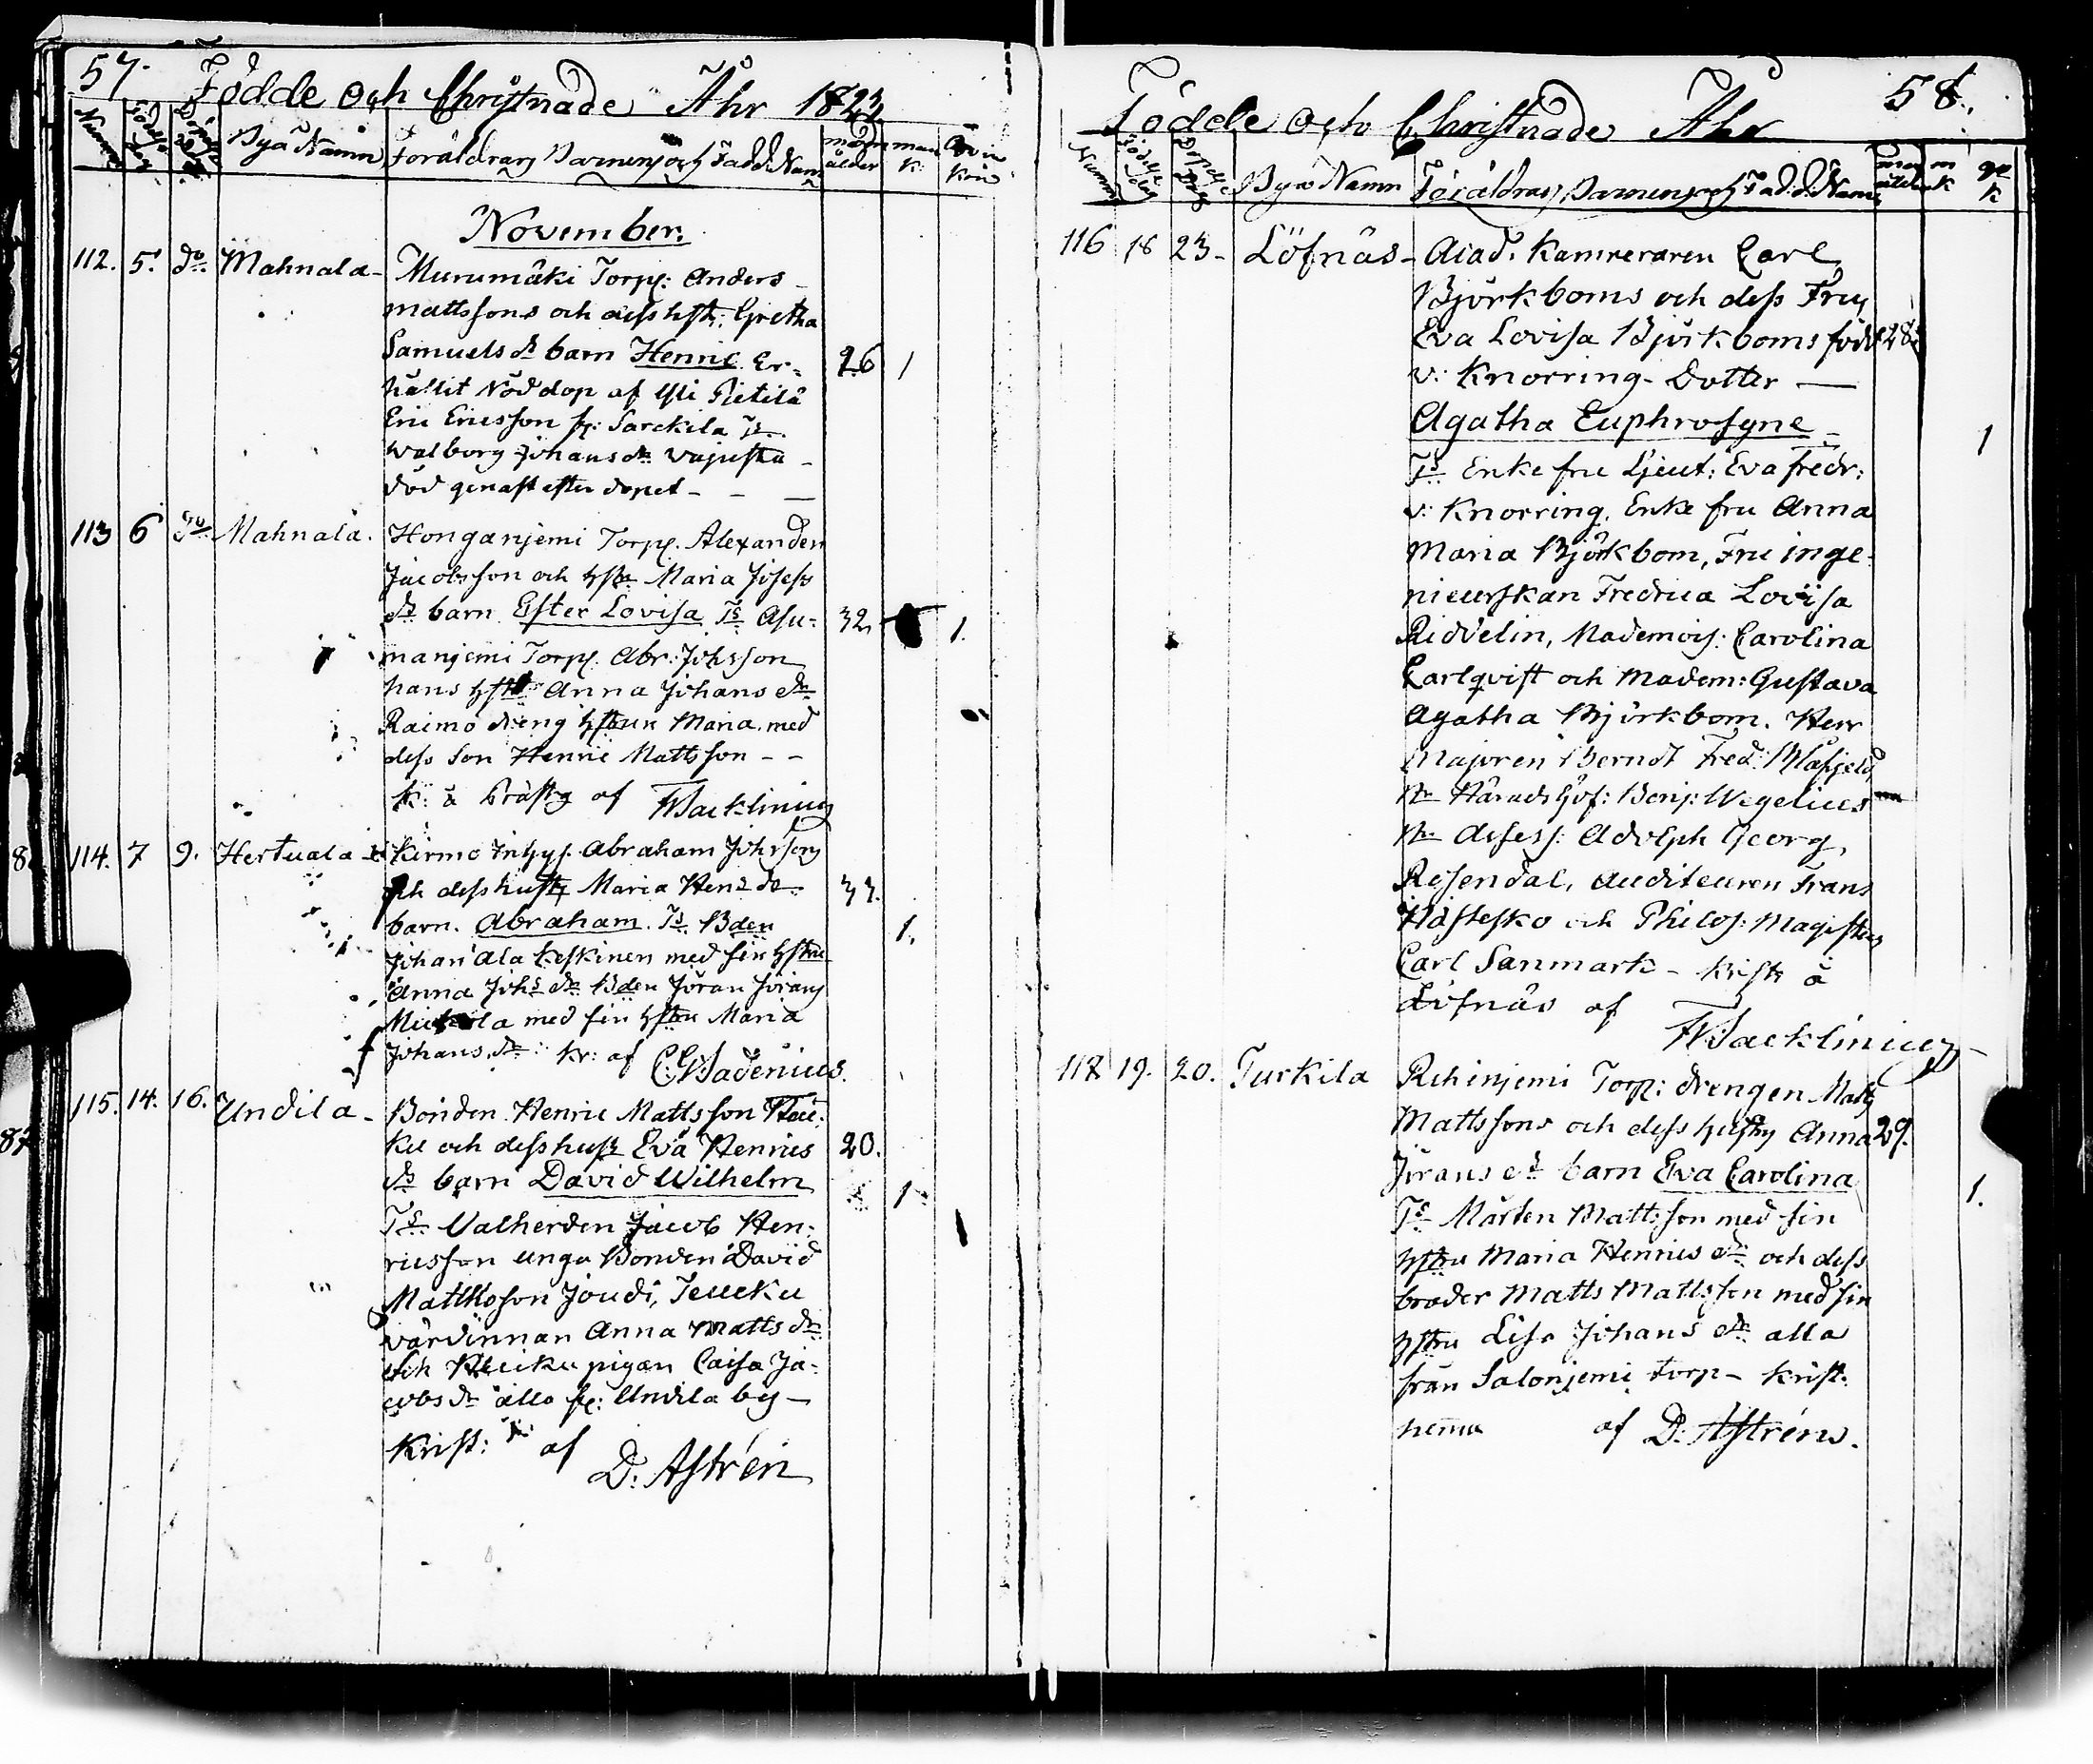 57.
Födde och Christnade Åhr 1823
Numer Födelse dag Döpelse dag Byä Namn Föräldrars Barnens och Fadd: Namn modr ålder man k: Qvin kön
November.
112. 5. do Mahnala - Murumäki Torp: Anders
Mattssons och dess hstr: Gretha
Samuels dr barn Henric Er= 26 1
hållit Nöddop af Yli Pietilä
Eric Ericsson fr: Sarckila Ts
Walborg Johans dr
död genast efter dopet - - —
113 6 do Mahnala. Honganjemi Torp. Alexander
Jacobsson och hstr Maria Josefs
dr barn Ester Lovisa Ts Asu= 32. 1.
manjemi Torp. Abr: Johsson
hans hstru Anna Johans dr
Raimo dreng hstrun Maria med
dess Son Henric Mattsson - -
K: å Prästg af Wacklinius
114. 7 9. Hertuala Kirmo Inhys. Abraham Johnssons
och dess hustr Maria Henr dr 33.
barn. Abraham. Ts Bden 1.
Johan Ala Keskinen med sin hstru
Anna Johs dr Bden Jöran Jörans
Mickola med sin hstru Maria
Johans dr: Kr: af C. Wadenius.
115. 14. 16. Undila - Bonden Henric Mattsson
ku och dess hustr Eva Henrics 20.
dr barn David Wilhelm 1
Ts Valherden Jacob Hen=
ricsson unga Bonden David
Mattsson Joudi, Teucku
värdinnan Anna Matts dr
och pigan Caisa Ja-
cobs dr alla fr: Undila by -
Krist: af D. Astrén
58.
Födde och Christnade Åhr
Numer Födelse dag Döpelse dag Byä Namn Föräldrars, Barnens och Fad.d. Namn mod ålder m k qv k
116 18 23 - Löfnäs - Acad. Kamreraren Carl
Björkboms och dess Fru
Eva Lovisa Björkboms född 28
v: Knorring - Dotter —
Agatha Euphrosyne - 1
Ts Enke fru Ljeut: Eva Fredr:
v: Knorring, Enke fru Anna
Maria Björkbom, Fru inge=
nieurskan Fredrica Lovisa
Riddelin, Mademois: Carolina
Carlqvist och Madem: Gustava
Agatha Björkbom. Herr
Majoren Berndt Fred: Blåfjeld
Hr Häradshöf: Benj: Wegelius
Hr Assess: Adolph Georg
Rosendal, Auditeuren Frans
Hästesko och Philos: Magistern
Carl Sanmark - Kristn å
Löfnäs af Wacklinius
117 19. 20. Turkila Rihinjemi Torp: drengen Matts
Mattssons och dess hustru Anna 29.
Jörans dr barn Eva Carolina 1.
Ts Mårten Mattsson med sin
hstru Maria Henrics dr och dess
broder Matts Mattsson med sin
hstru Lisa Johans dr alla
från Salonjemi Torp - Krist:
hemma af D: Astrén.